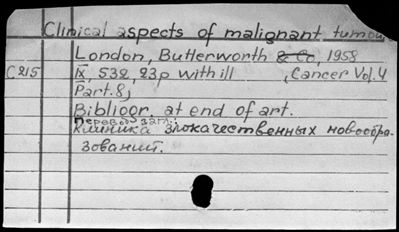 Clinical aspects of malignant tumou
London, Butterworth & Co, 1958
C215 IX, 532, 23p with ill , Cancer Vol. 4
Part. 8,
Bibliogr. at end of art.
Перевод загл.:
Клиника злокачественных новообра-
зований.